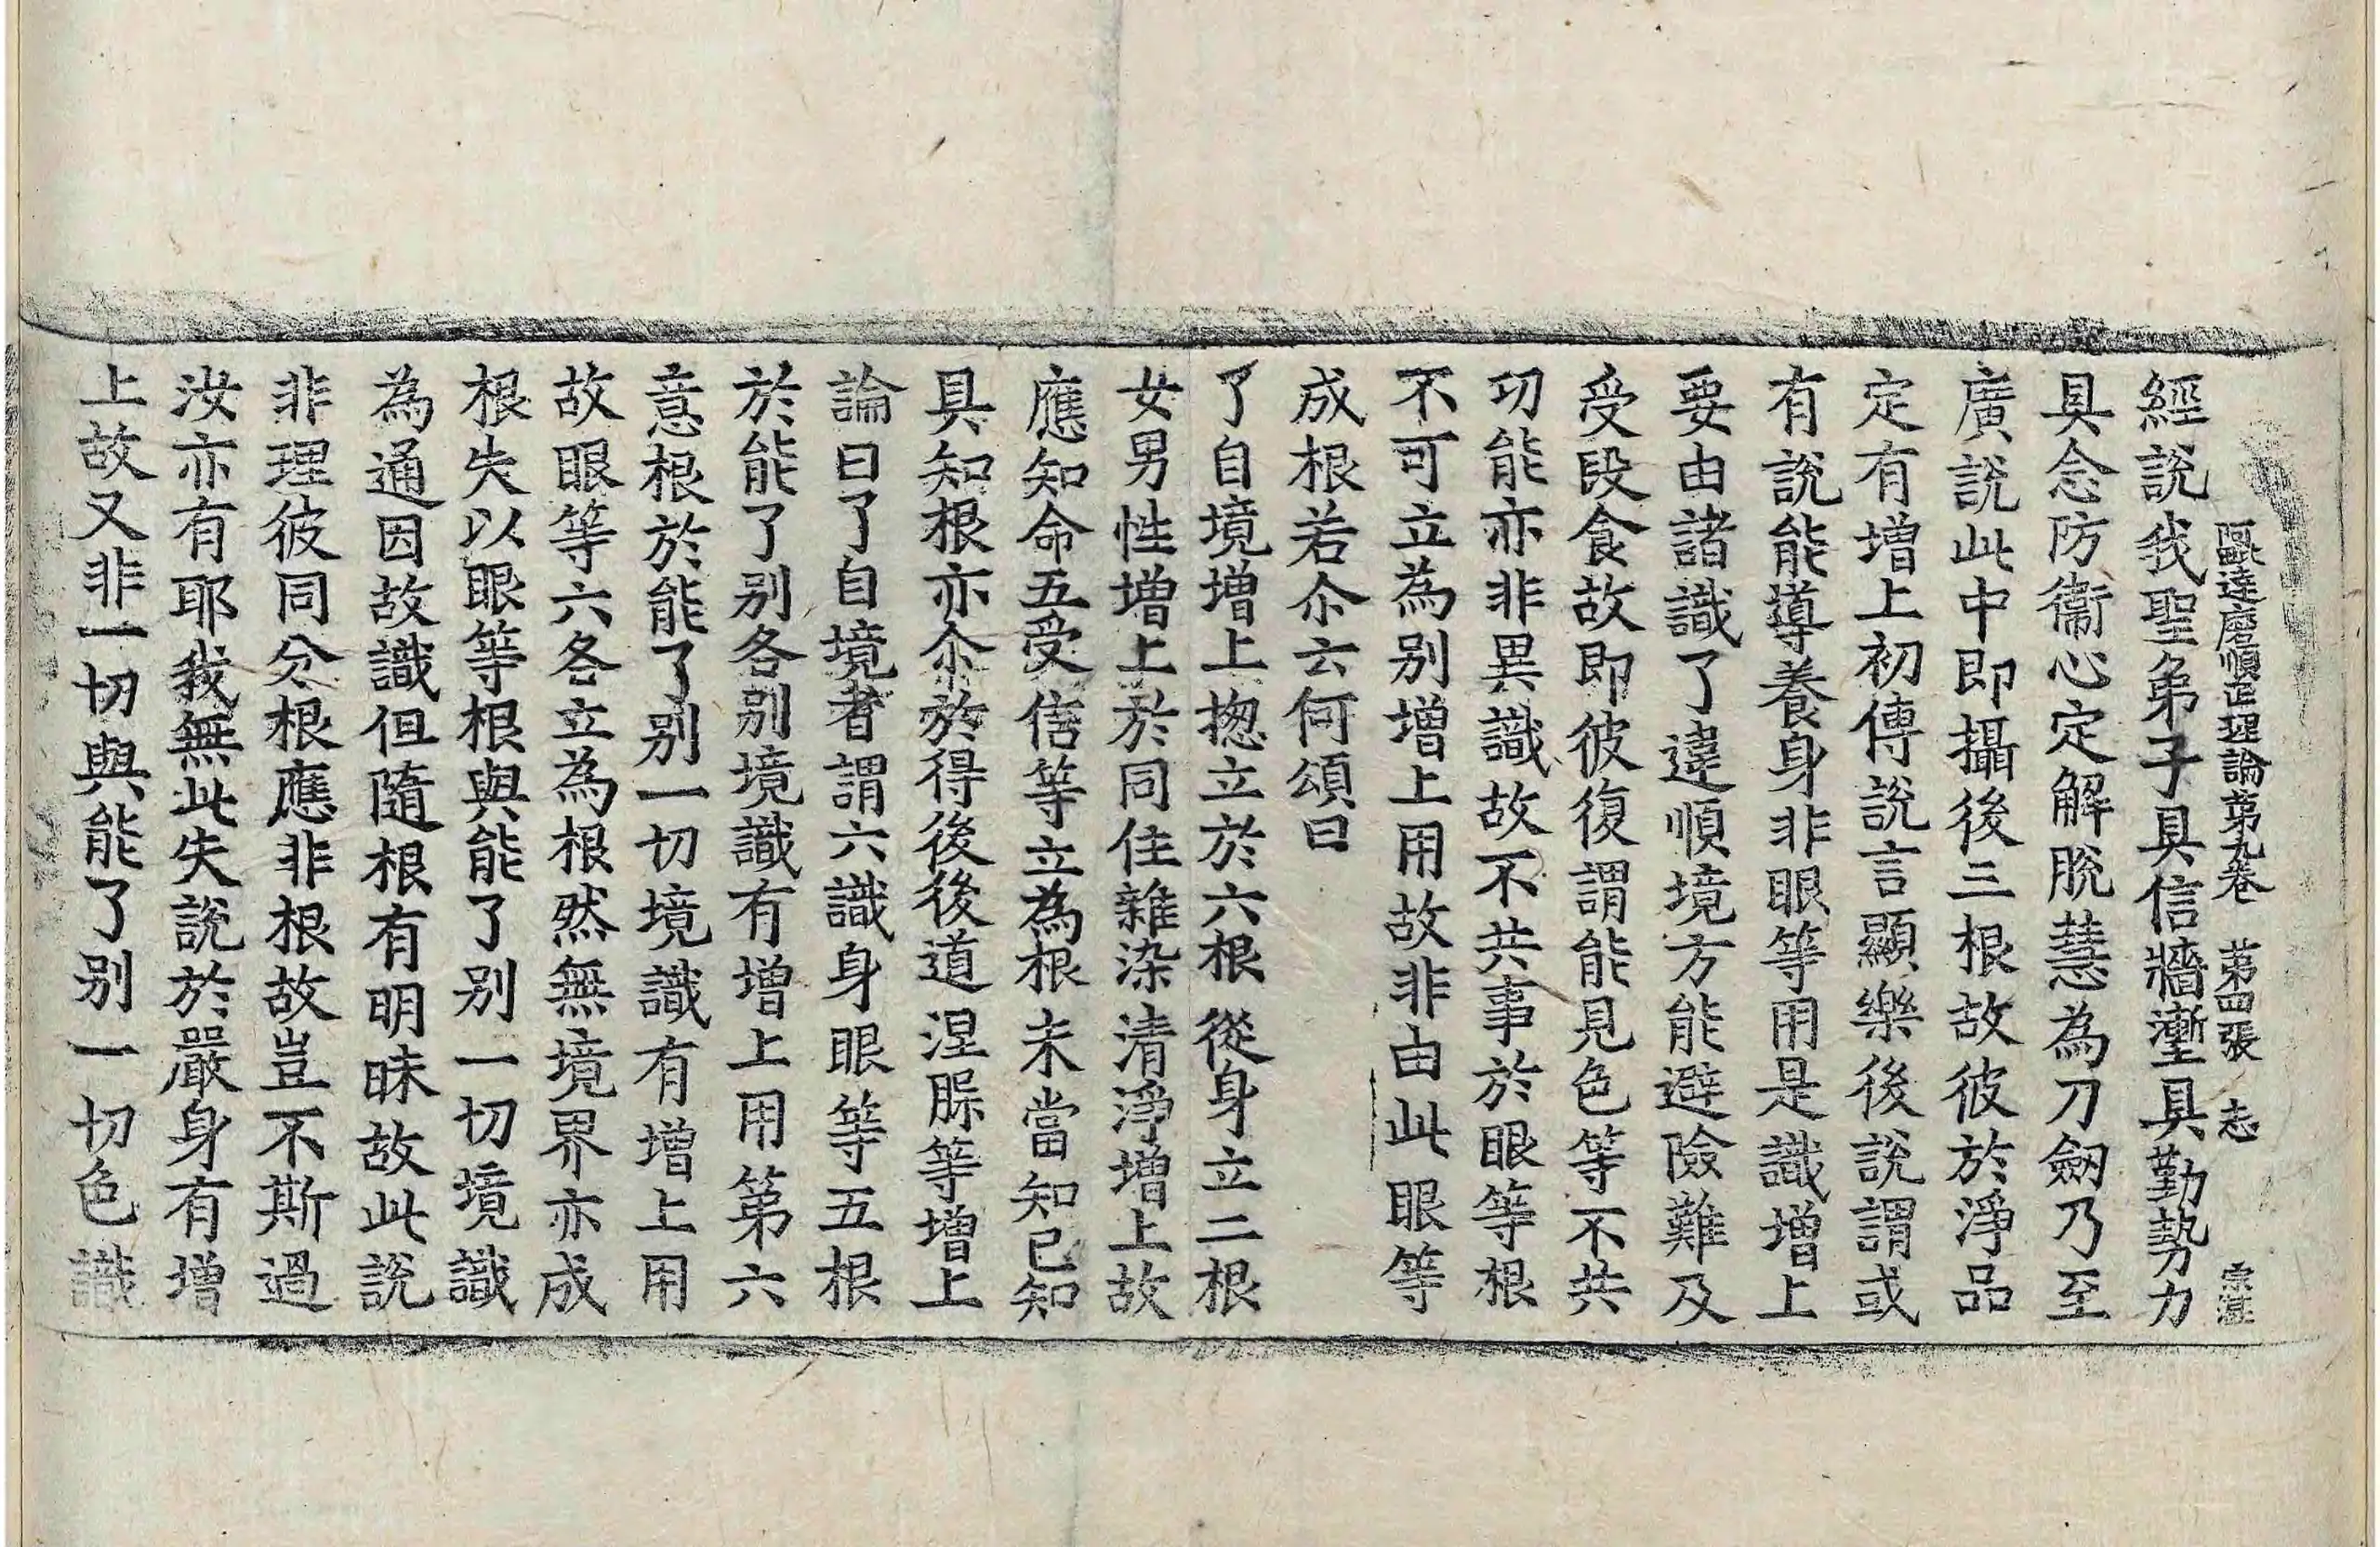 阿毗達磨順正理論第九卷 第四張 志
經說我聖弟子具信牆壍具勤勢力
具念防衞心定解脫慧為刀劒乃至
廣說此中即攝後三根故彼於淨品
定有增上初傳說言顯樂後說謂或
有說能導養身非眼等用是識增上
要由諸識了違順境方能避險難及
受段食故即彼復謂能見色等不共
功能亦非異識故不共事於眼等根
不可立為別增上用故非由此眼等
成根若尒云何頌曰
了自境增上揔立於六根從身立二根
女男性增上於同住雜染清淨增上故
應知命五受信等立為根未當知已知
具知根亦尒於得後後道涅脎等增上
論曰了自境者謂六識身眼等五根
於能了別各別境識有增上用第六
意根於能了別一切境識有增上用
故眼等六各立為根然無境界亦成
根失以眼等根與能了別一切境識
為通因故識但隨根有明昧故此說
非理彼同分根應非根故豈不斯過
汝亦有耶我無此失說於嚴身有增
上故又非一切與能了別一切色識